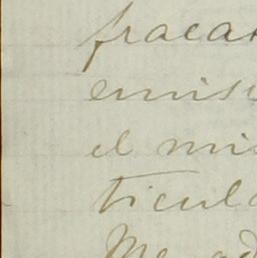 fraca
emis
el mi
ticul
Me ad